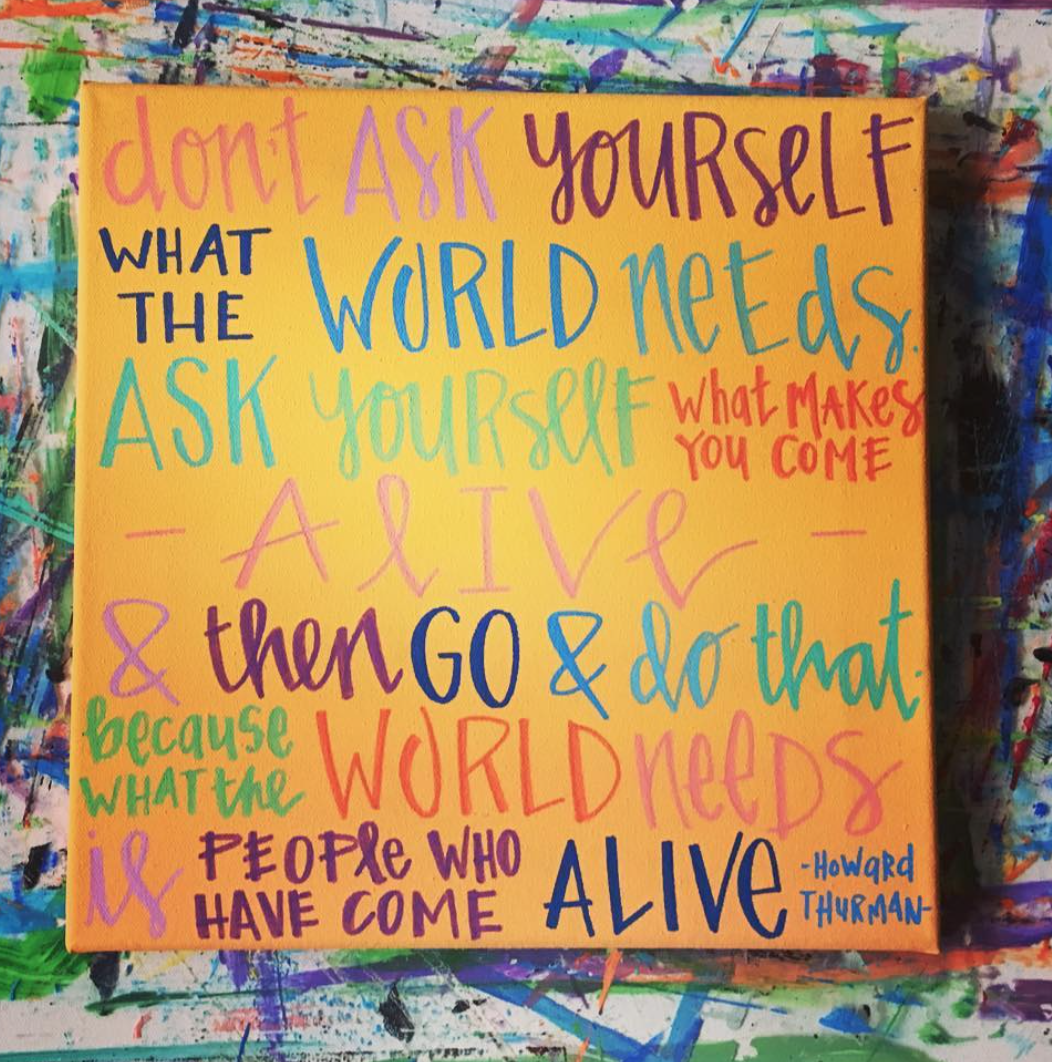 don't ASK YOURSELF
WHAT
THE WORLD NEEds.
ASK YOURSElF what MAKES
YOU COME
- AlIVe -
& then GO & do that.
because
WHAT the WORLD NeeDS
is PEOPle WHO
HAVE COME ALIVe -HOWARD
THURMAN-